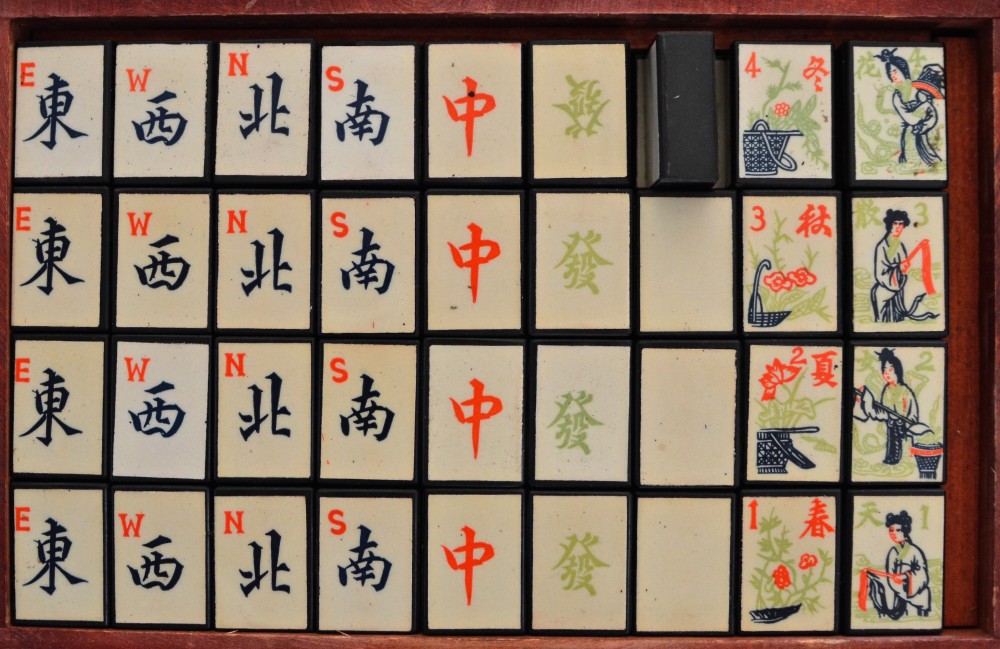 E東 W西 N北 S南 中 發 4 冬 花 4
E東 W西 N北 S南 中 發 3 秋 散 3
E東 W西 N北 S南 中 發 2 夏 女 2
E東 W西 N北 S南 中 發 1 春 天 1